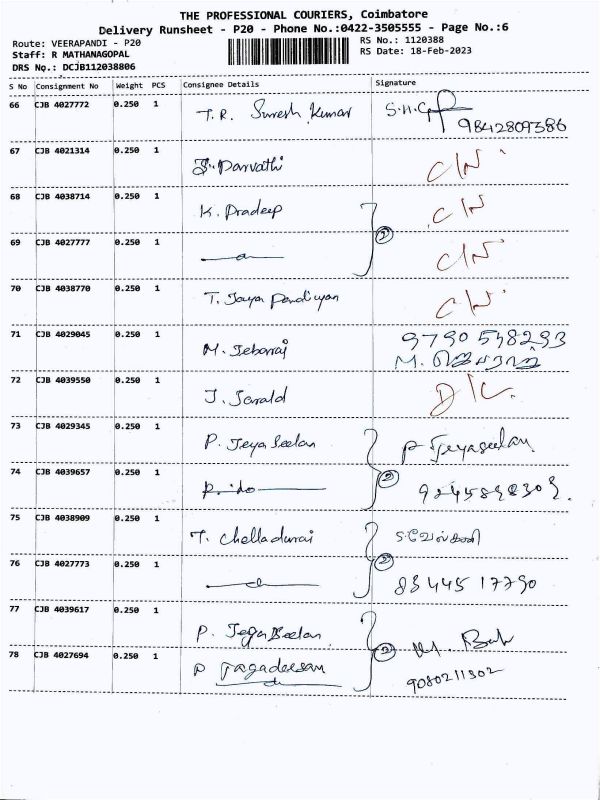 THE PROFESSIONAL COURIERS, Coimbatore
Delivery Runsheet - P20 - Phone No.:0422-3505555 - Page No.:6
Route: VEERAPANDI - P20
Staff: R MATHANAGOPAL
DRS No.: DCJB112038806
RS No.: 1120388
RS Date: 18-Feb-2023
S No Consignment No Weight PCS Consignee Details Signature
66 CJB 4027772 0.250 1 T.R. Suresh Kumar
9842809386
67 CJB 4021314 0.250 1 S. Parvathi C/N
68 CJB 4038714 0.250 1 K. Pradeep C/N
69 CJB 4027777 0.250 1 C/N
2
70 CJB 4038770 0.250 1 T. Jaya Pandiyan C/N
71 CJB 4029045 0.250 1 M. Jebaraj 9790548293
M. ஜெபராஜ்
72 CJB 4039550 0.250 1 J. Jarald D/C.
73 CJB 4029345 0.250 1 P. Jeya Seelan P Jeyaseelan
2
74 CJB 4039657 0.250 1
75 CJB 4038909 0.250 1 T. Chelladurai
2
76 CJB 4027773 0.250 1 8344517790
77 CJB 4039617 0.250 1 P. Jeya Seelan
2
78 CJB 4027694 0.250 1 P Jagadeesan 9080211302